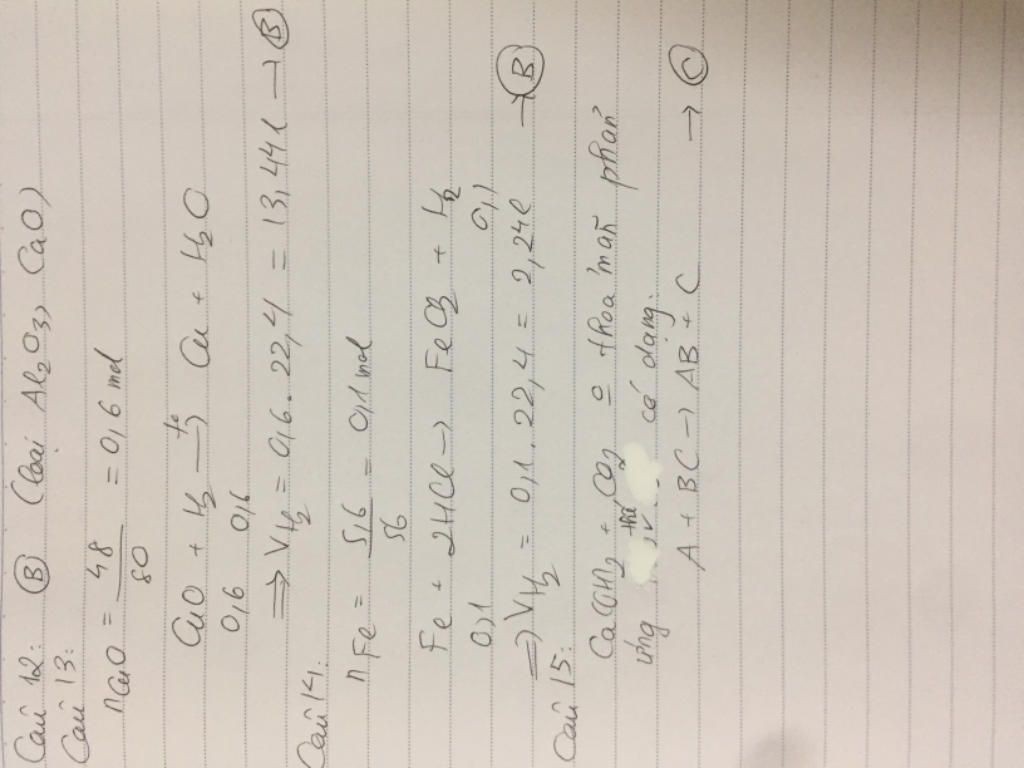 Câu 12: B (loại Al2O3, CaO)
Câu 13:
nCuO = 48/80 = 0,6 mol
CuO + H2 →(to) Cu + H2O
0,6 0,6
⇒ VH2 = 0,6 . 22,4 = 13,44 l → B
Câu 14:
nFe = 5,6/56 = 0,1 mol
Fe + 2HCl → FeCl2 + H2
0,1 0,1
⇒ VH2 = 0,1 . 22,4 = 2,24l → B
Câu 15:
thỏa mãn phản
ứng thế có dạng.
A + BC → AB + C → C